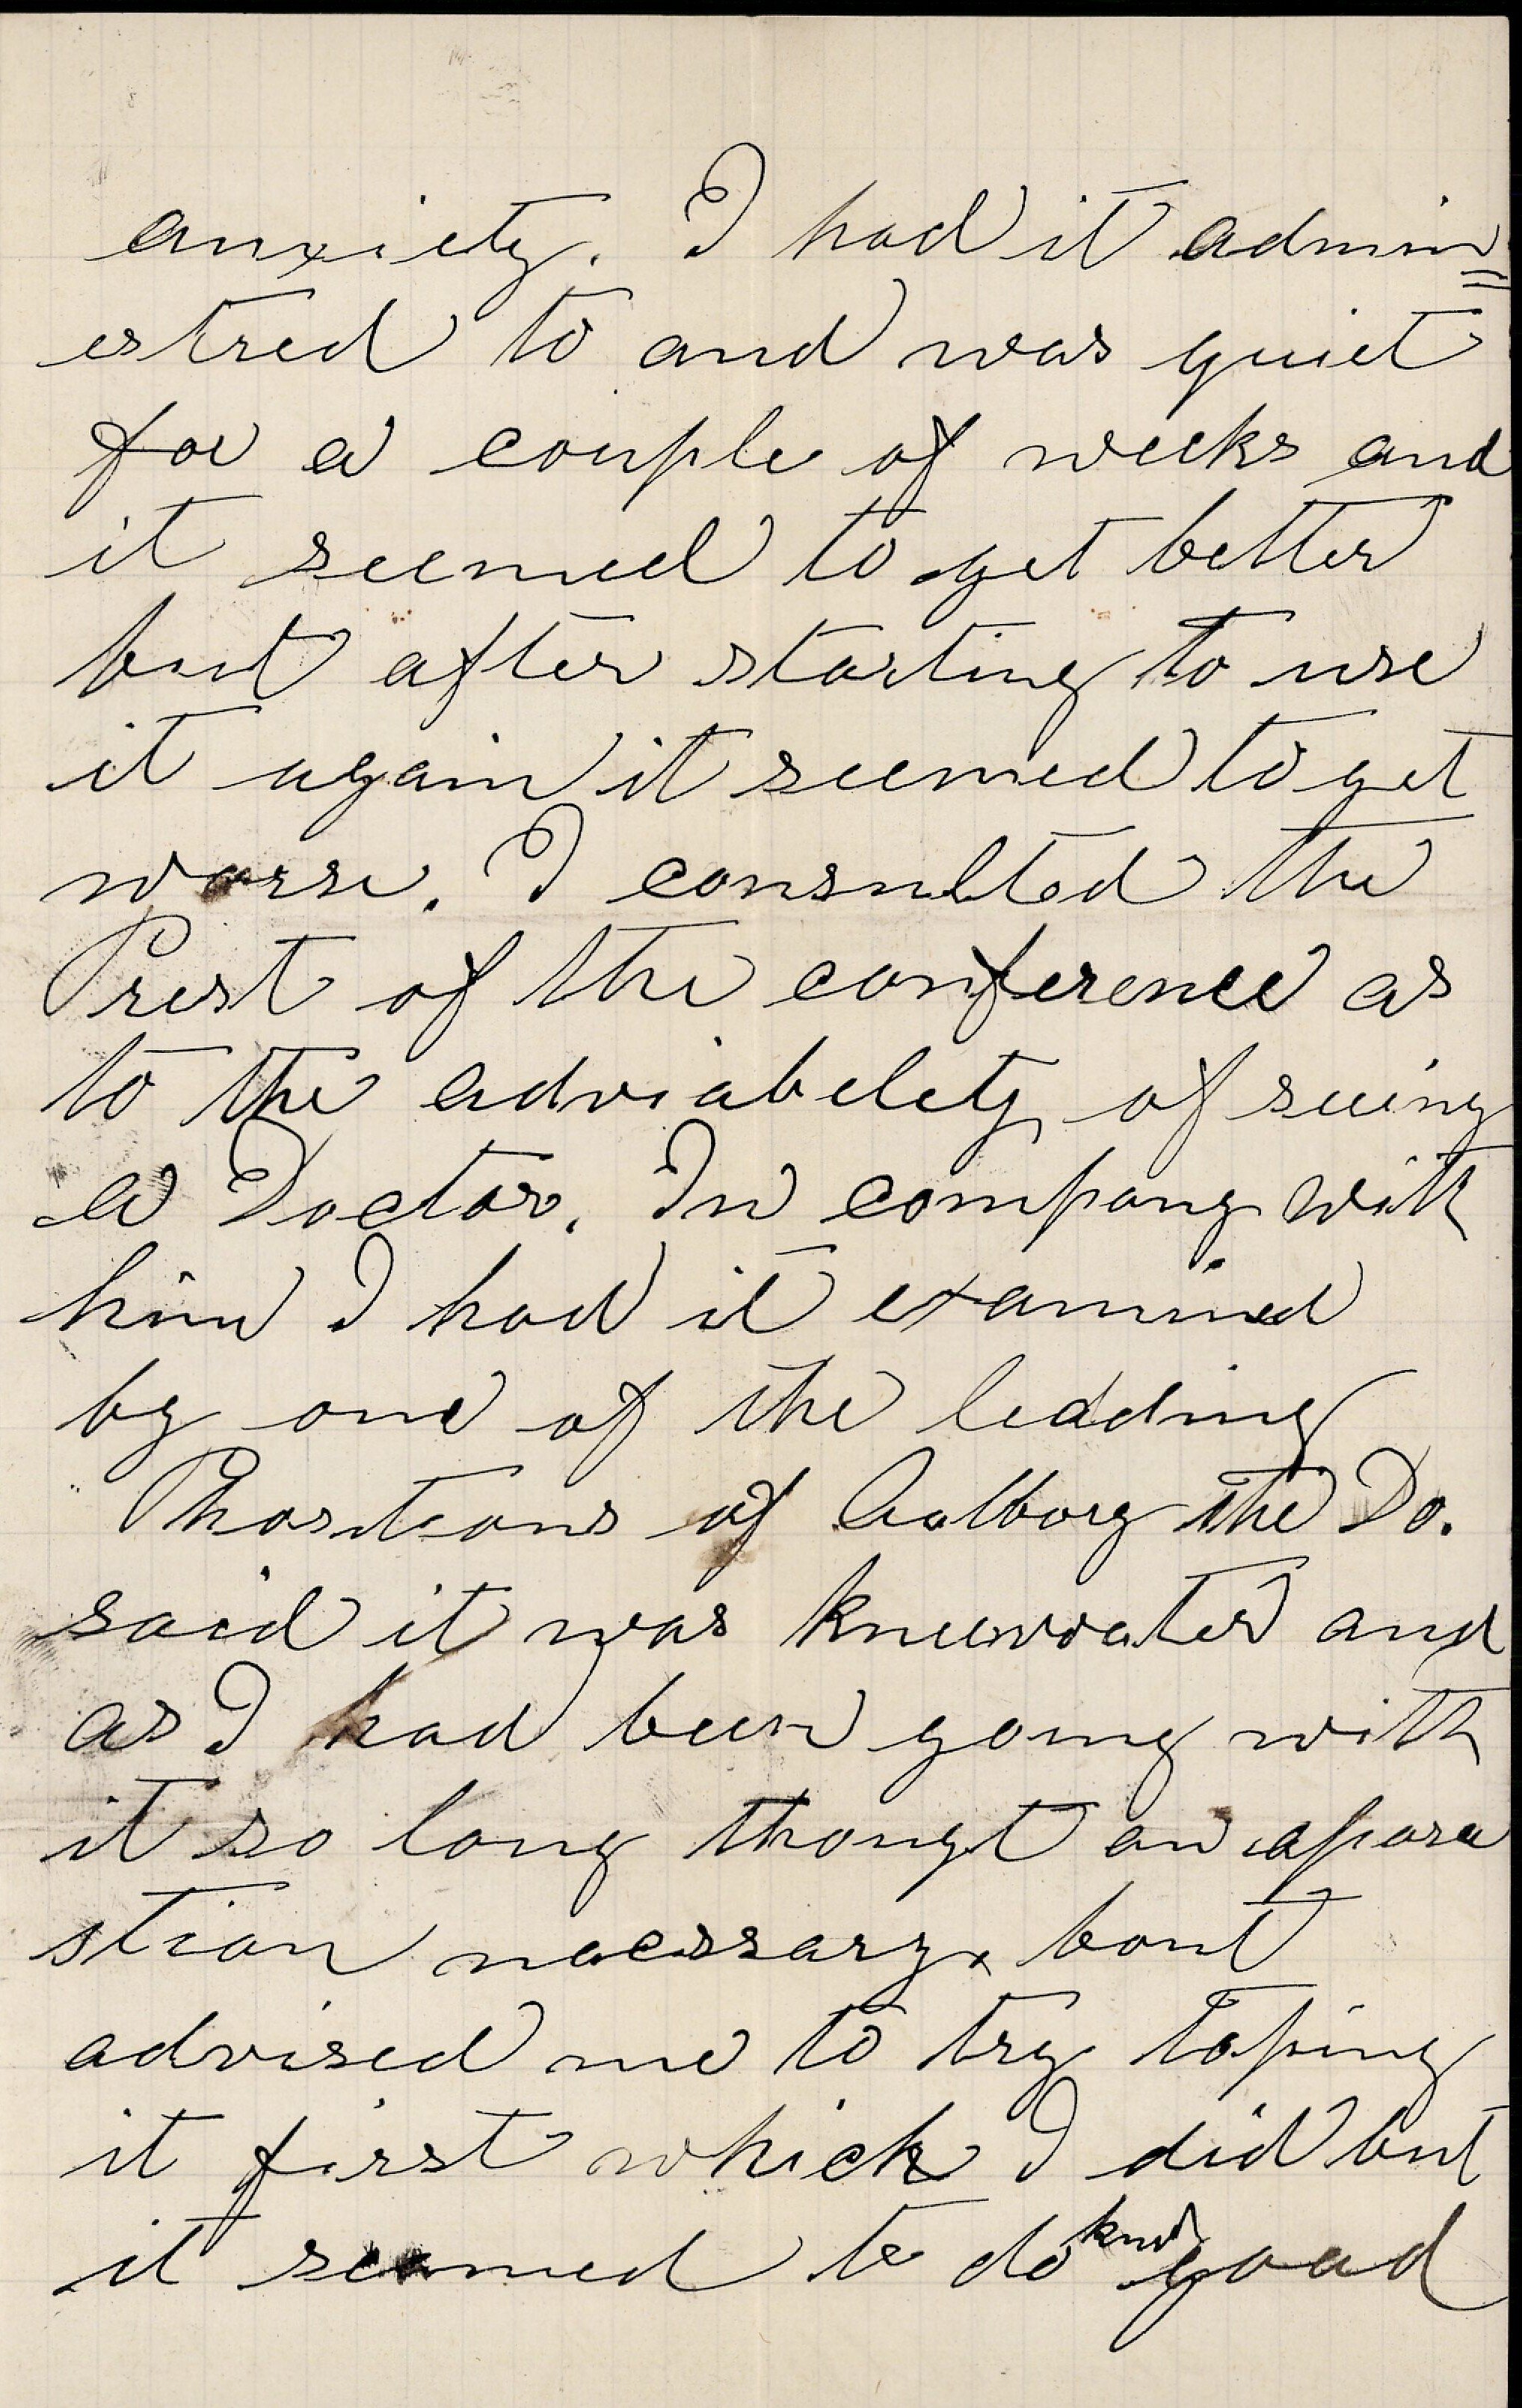 anxiety. I had it admin=
estred to and was quiet
for a couple of weeks and
it seemed to get better
but after starting to use
it again it seemed to get
worse. I consulted the
Prest of the conference as
to the adviabelety of seeing
a Doctor. In company with
him I had it examined
by one of the leading
of Aalborg the Do.
said it was kneewater and
as I had been going with
it so long thougt an apara
stion nacessary. bout
advised me to try taping
it first which I did but
it seemed to do know good